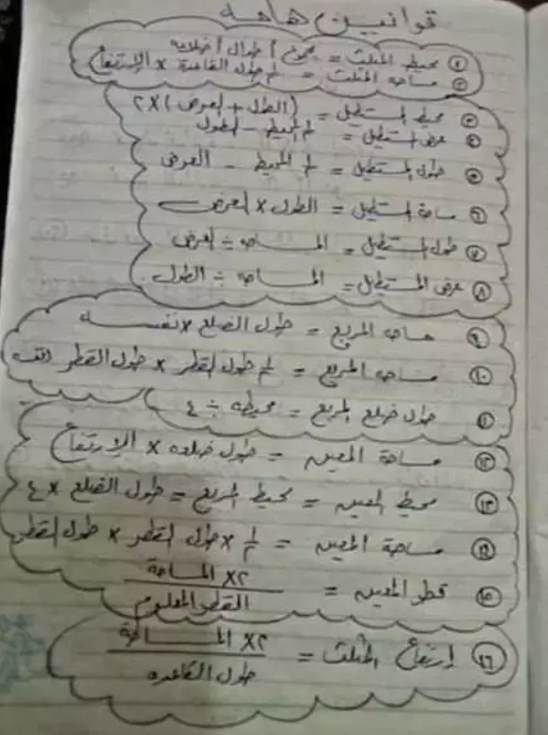 قوانين هامه
① محيط المثلث = مجموع أطوال أضلاعه
② مساحه المثلث = ½ طول القاعدة × الإرتفاع
③ محيط المستطيل = (الطول + العرض) × ٢
④ عرض المستطيل = ½ المحيط - الطول
⑤ طول المستطيل = ½ المحيط - العرض
⑥ مساحة المستطيل = الطول × العرض
⑦ طول المستطيل = المساحه ÷ العرض
⑧ عرض المستطيل = المساحه ÷ الطول
⑨ مساحه المربع = طول الضلع × نفسه
⑩ مساحه المربع = ½ طول القطر × طول القطر نفسه
⑪ طول ضلع المربع = محيطه ÷ ٤
⑫ مساحة المعين = طول ضلعه × الإرتفاع
⑬ محيط المعين = محيط المربع = طول الضلع × ٤
⑭ مساحة المعين = ½ × طول القطر × طول القطر
⑮ قطر المعين = ٢ × المساحة
القطر المعلوم
⑯ إرتفاع المثلث = ٢ × المساحة
طول القاعده